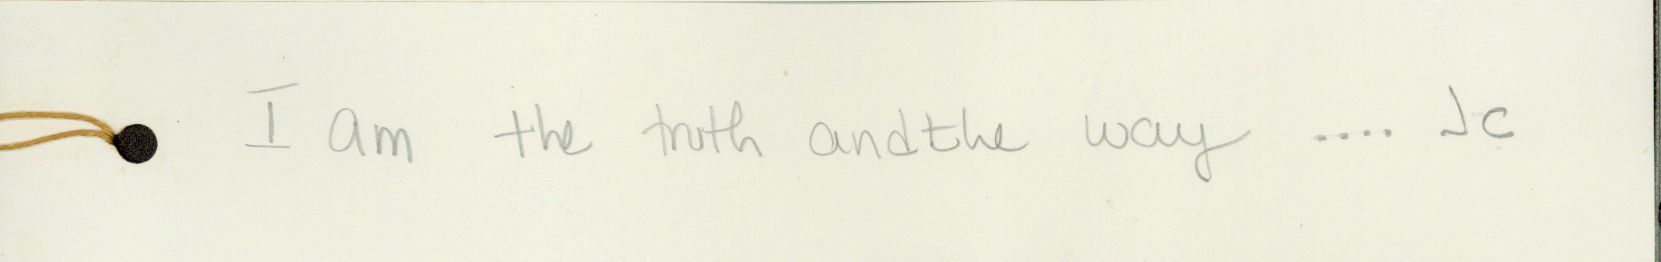 I am the truth and the way .... Jc